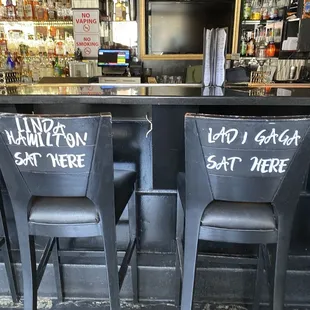 NO
VAPING
NO
SMOKING
LINDA
HAMILTON
SAT HERE
LADI GAGA
SAT HERE